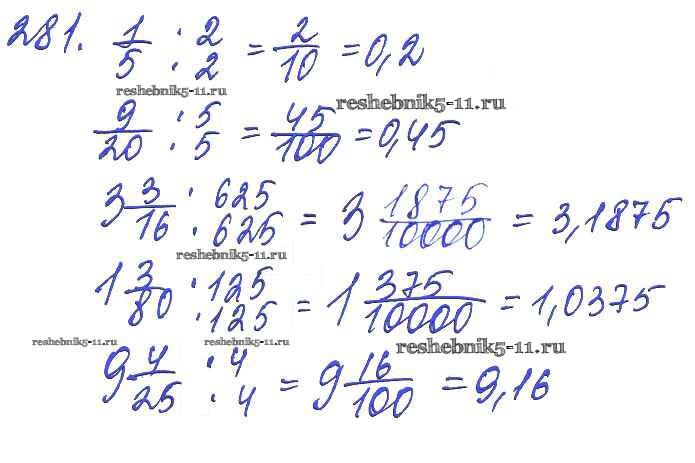 281. 1/5 ·2/·2 = 2/10 = 0,2
reshebnik5-11.ru
reshebnik5-11.ru
9/20 ·5/·5 = 45/100 = 0,45
3 3/16 ·625/·625 = 3 1875/10000 = 3,1875
reshebnik5-11.ru
1 3/80 ·125/·125 = 1 375/10000 = 1,0375
reshebnik5-11.ru reshebnik5-11.ru reshebnik5-11.ru
9 4/25 ·4/·4 = 9 16/100 = 9,16